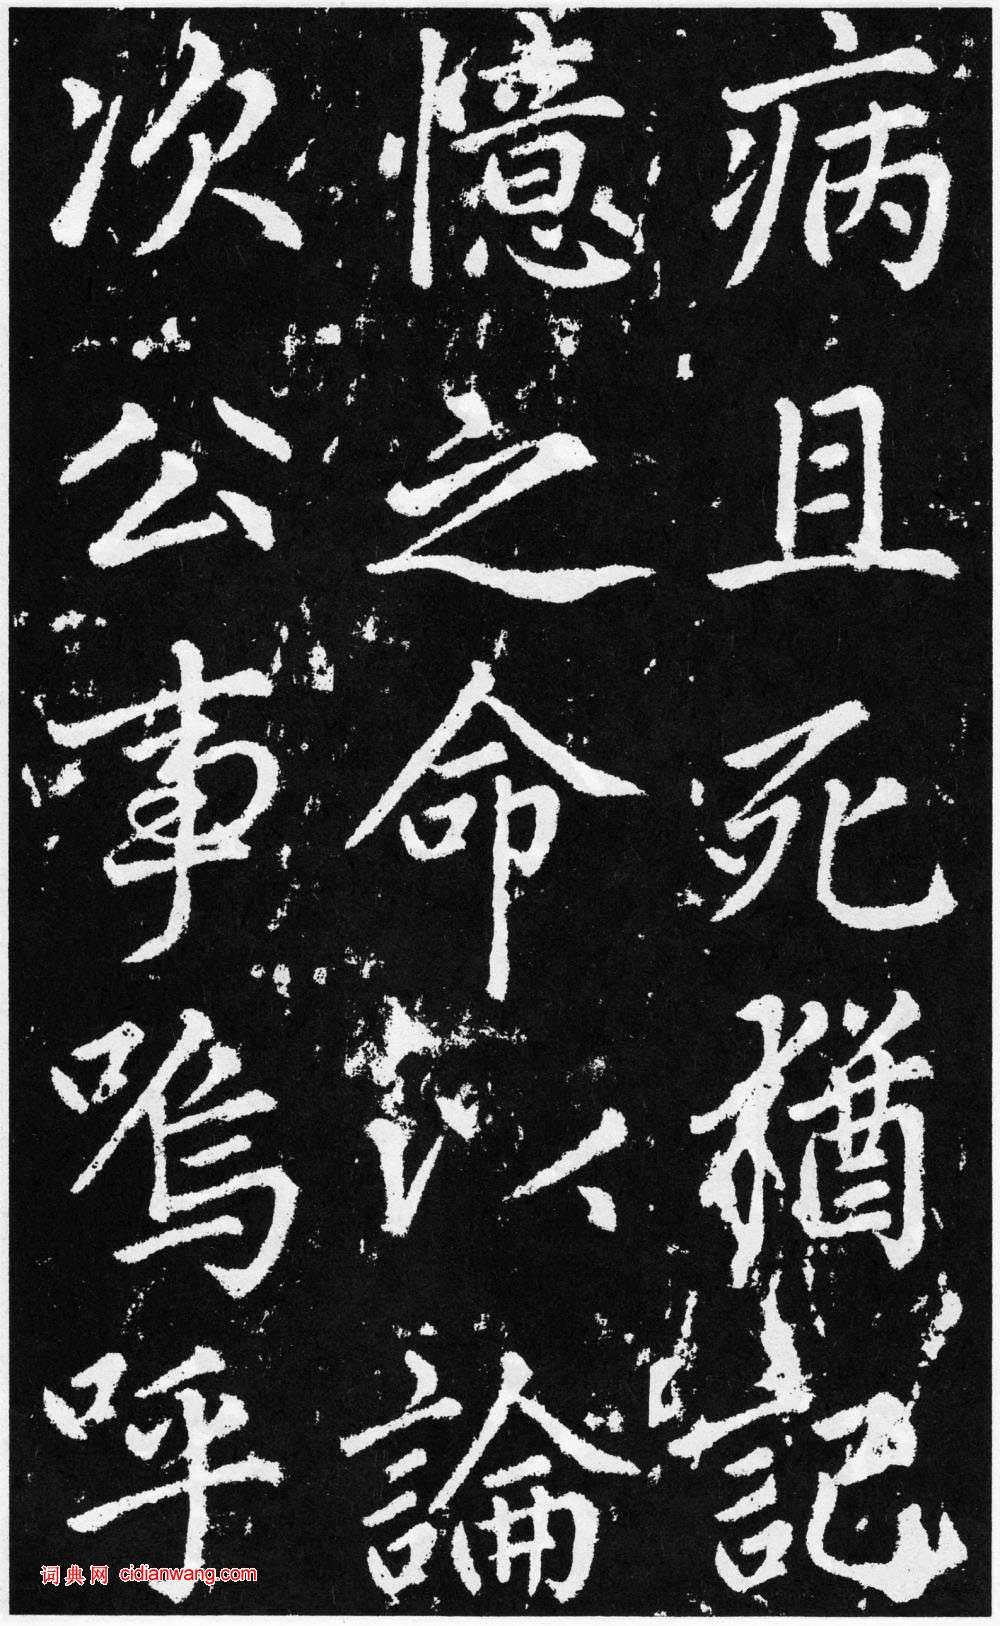 病且死猶記
憶之命以論
次公事嗚呼
词典网 cidianwang.com